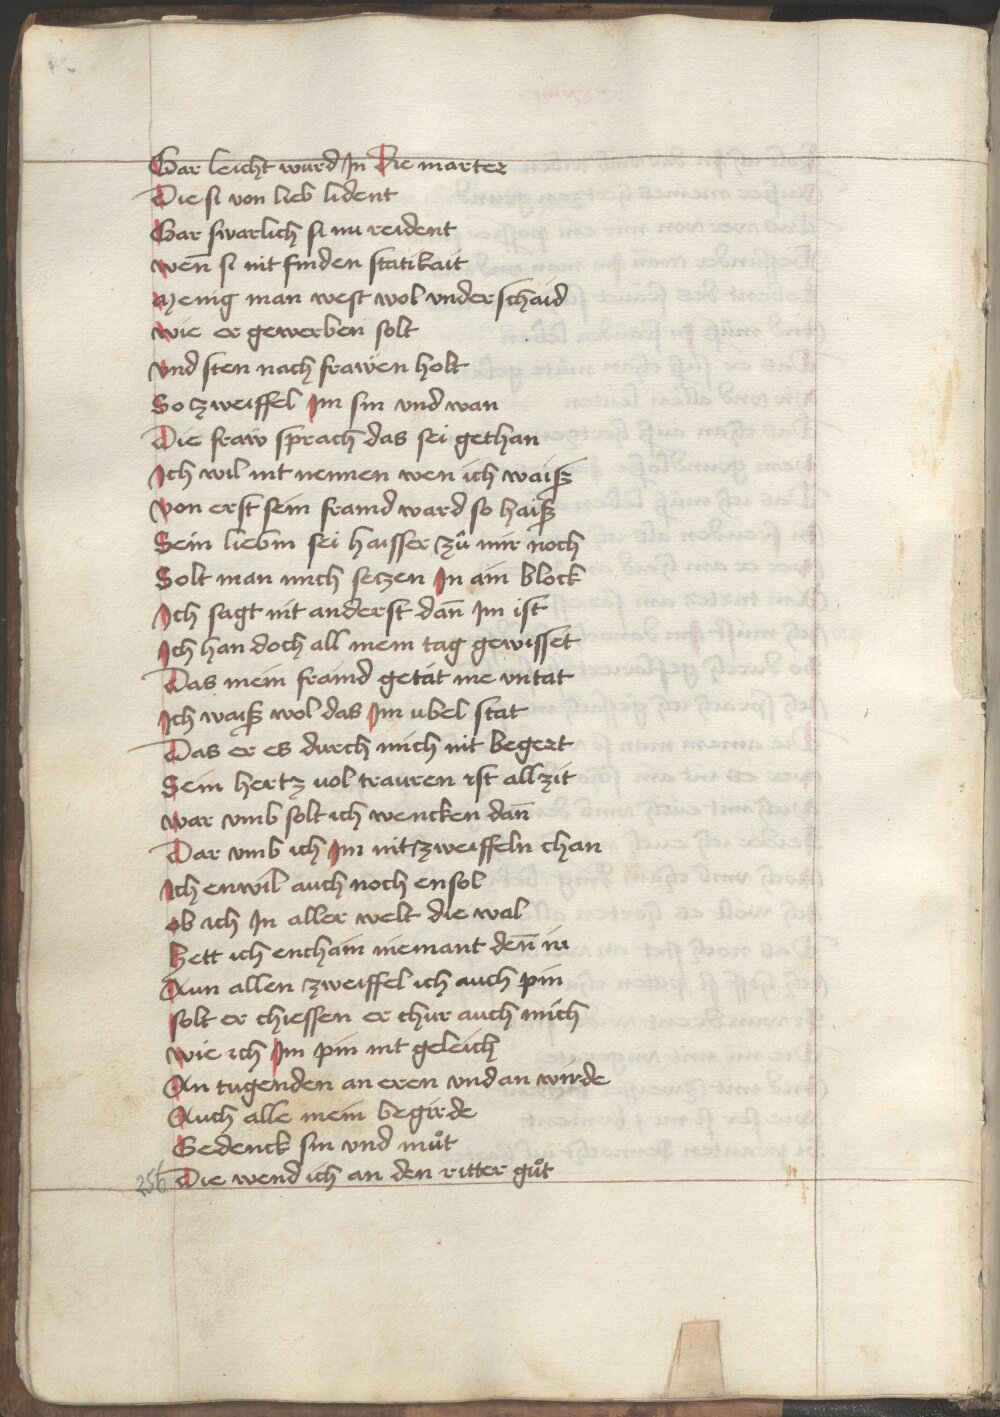 Gar leicht wurd In Die marter
Die si von lieb lident
Gar swarlich si nu reident
wen̄ si nit finden statikait
Menig man west wol vnderschaid
wie er gewerben solt
vnd sten nach frawen holt
So zweiffel Im sin vnd wan
Die fraw sprach das sei gethan
Ich wil nit nennen wen ich waiß
von erst sein fraind ward so haiß
Sein liebin sei haisser zů mir noch
Solt man mich setzen In ain block
Ich sagt nit anderst dan̄ Im ist
Ich han doch all mein tag gewisset
Das mein fraind getät nie vntat
Ich waiß wol das Im ubel stat
Das er es durch mich nit begert
Sein hertz vol trauren ist allzit
war vmb solt ich wencken dan̄
Dar vmb ich Im nit zweiffeln chan
Ich enwil auch noch ensol
ob ich In aller welt die wal
Hett ich enchain niemant den̄ in
Aun allen zweiffel ich auch pin
solt er chiessen er chur auch mich
wie ich Im pin nit geleich
An tugenden an eren vnd an wirde
Auch alle mein begirde
Gedenck sin vnd můt
256 Die wend ich an den ritter gůt